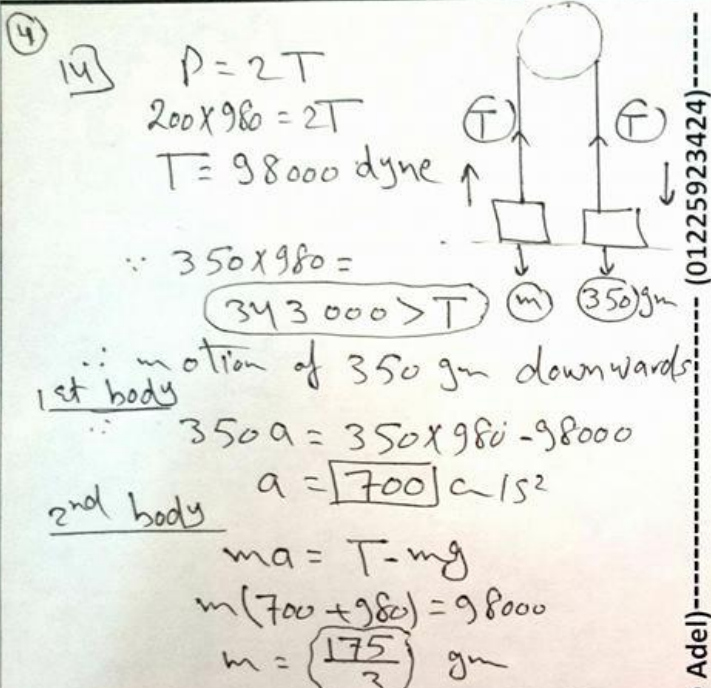 4
14] P = 2T
200 × 980 = 2T
T = 98000 dyne
T T
∵ 350 × 980 =
343000 > T
m 350 gm
∴ motion of 350 gm downwards
1st body
∵ 350 a = 350 × 980 - 98000
a = 700 cm/s²
2nd body
ma = T - mg
m(700 + 980) = 98000
m = 175/3 gm
Adel)---------- (01225923424)-----